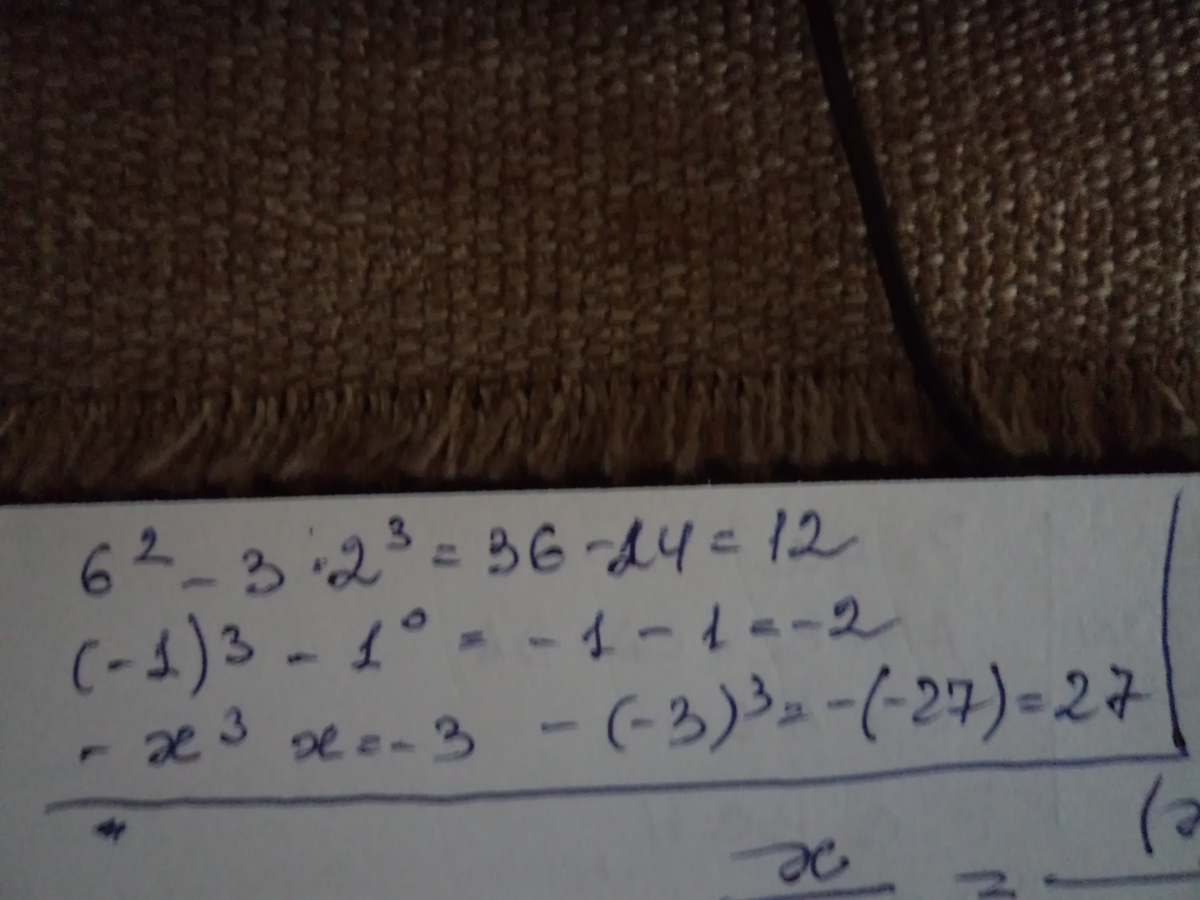 6² - 3 · 2³ = 36 - 24 = 12
(-1)³ - 1⁰ = -1 - 1 = -2
- x³ x = -3 - (-3)³ = -(-27) = 27
x = (x